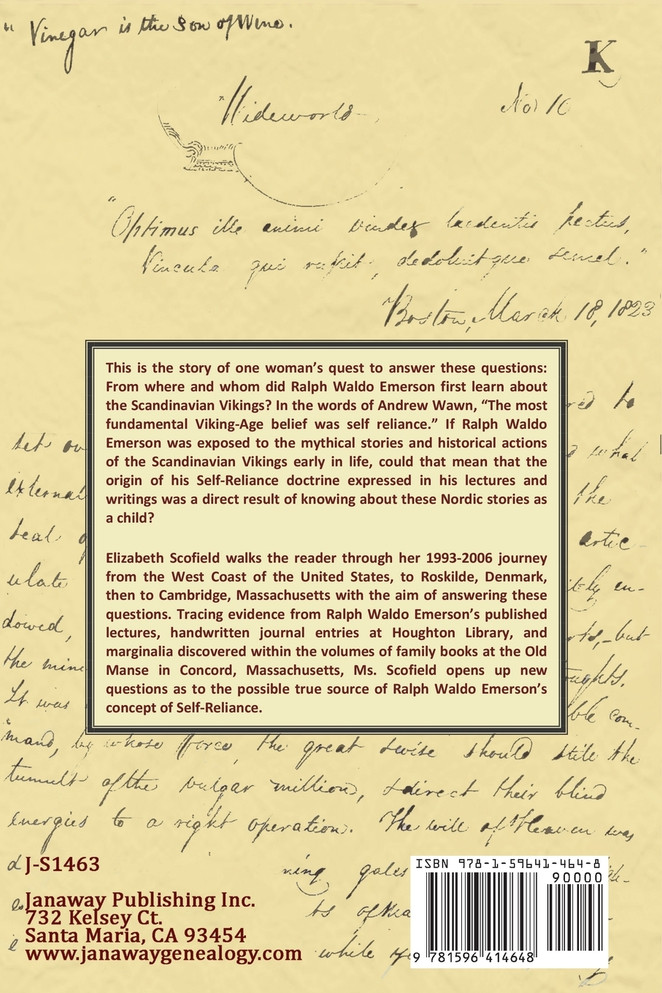 " Vinegar is the Son of Wine.
K
"Wideworld
No. 10
"Optimus ille animi vindex laedentis pectus,
Vincula qui rupit, dedoluitque semel."
Boston, March 18, 1823
This is the story of one woman's quest to answer these questions:
From where and whom did Ralph Waldo Emerson first learn about
the Scandinavian Vikings? In the words of Andrew Wawn, "The most
fundamental Viking-Age belief was self reliance." If Ralph Waldo
Emerson was exposed to the mythical stories and historical actions
of the Scandinavian Vikings early in life, could that mean that the
origin of his Self-Reliance doctrine expressed in his lectures and
writings was a direct result of knowing about these Nordic stories as
a child?
Elizabeth Scofield walks the reader through her 1993-2006 journey
from the West Coast of the United States, to Roskilde, Denmark,
then to Cambridge, Massachusetts with the aim of answering these
questions. Tracing evidence from Ralph Waldo Emerson's published
lectures, handwritten journal entries at Houghton Library, and
marginalia discovered within the volumes of family books at the Old
Manse in Concord, Massachusetts, Ms. Scofield opens up new
questions as to the possible true source of Ralph Waldo Emerson's
concept of Self-Reliance.
to
what
external
the
ulate
en-
dowed,
but
the
It was
com-
mand, by whose force, the great & wise should still the
tumult of the vulgar million, & direct their blind
energies to a right operation. The will of Heaven was
J-S1463
gales
Janaway Publishing Inc.
732 Kelsey Ct.
Santa Maria, CA 93454
www.janawaygenealogy.com
while
ISBN 978-1-59641-464-8
90000
9 781596 414648